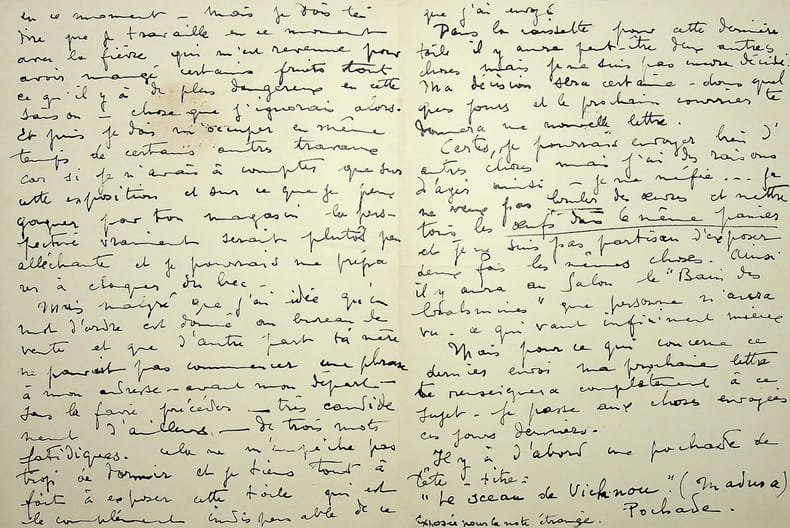 en ce moment – Mais je dois te
dire que je travaille en ce moment
avec la fièvre qui m'est revenue pour
avoir mangé certains fruits tout
ce qu'il y a de plus dangereux en cette
saison – chose que j'ignorais alors.
Et puis je dois m'occuper en même
temps de certains autres travaux
car si je n'avais à compter que sur
cette exposition et sur ce que je peux
gagner pour ton magasin la pers-
pective vraiment serait plutôt peu
alléchante et je pourrais me prépa
rer à claquer du bec –
Mais malgré que j'ai idée qu'un
mot d'ordre est donné au bureau de
vente et que d'autre part ta mère
ne pouvait pas commencer une phrase
à mon adresse – avant mon départ –
sans la faire précéder – très candide
ment d'ailleurs – de trois mots
fatidiques. cela ne m'empêche pas
trop de dormir et je tiens tout à
fait à exposer cette toile qui est
le complément indispensable de ce
que j'ai envoyé
Dans la caissette pour cette dernière
toile il y aura peut-être deux autres
choses mais je ne suis pas encore décidé.
Ma décision sera certaine – dans quel
ques jours et le prochain courrier te
donnera une nouvelle lettre.
Certes, je pourrais envoyer bien d'
autres choses mais j'ai des raisons
d'agir ainsi – je me méfie... je
ne veux pas des œuvres et mettre
tous les œufs dans le même panier
et je ne suis pas partisan d'exposer
deux fois les mêmes choses. Ainsi
il y aura au Salon le "Bain des
" que personne n'aura
vu. ce qui vaut infiniment mieux
Mais pour ce qui concerne ce
dernier envoi ma prochaine lettre
te renseignera complètement à ce
sujet. Je passe aux choses envoyées
ces jours derniers.
Il y a d'abord une pochade de
tête – titre =
"Le sceau de Vichnou." (Madura)
Pochade.
exposée pour la note étrange